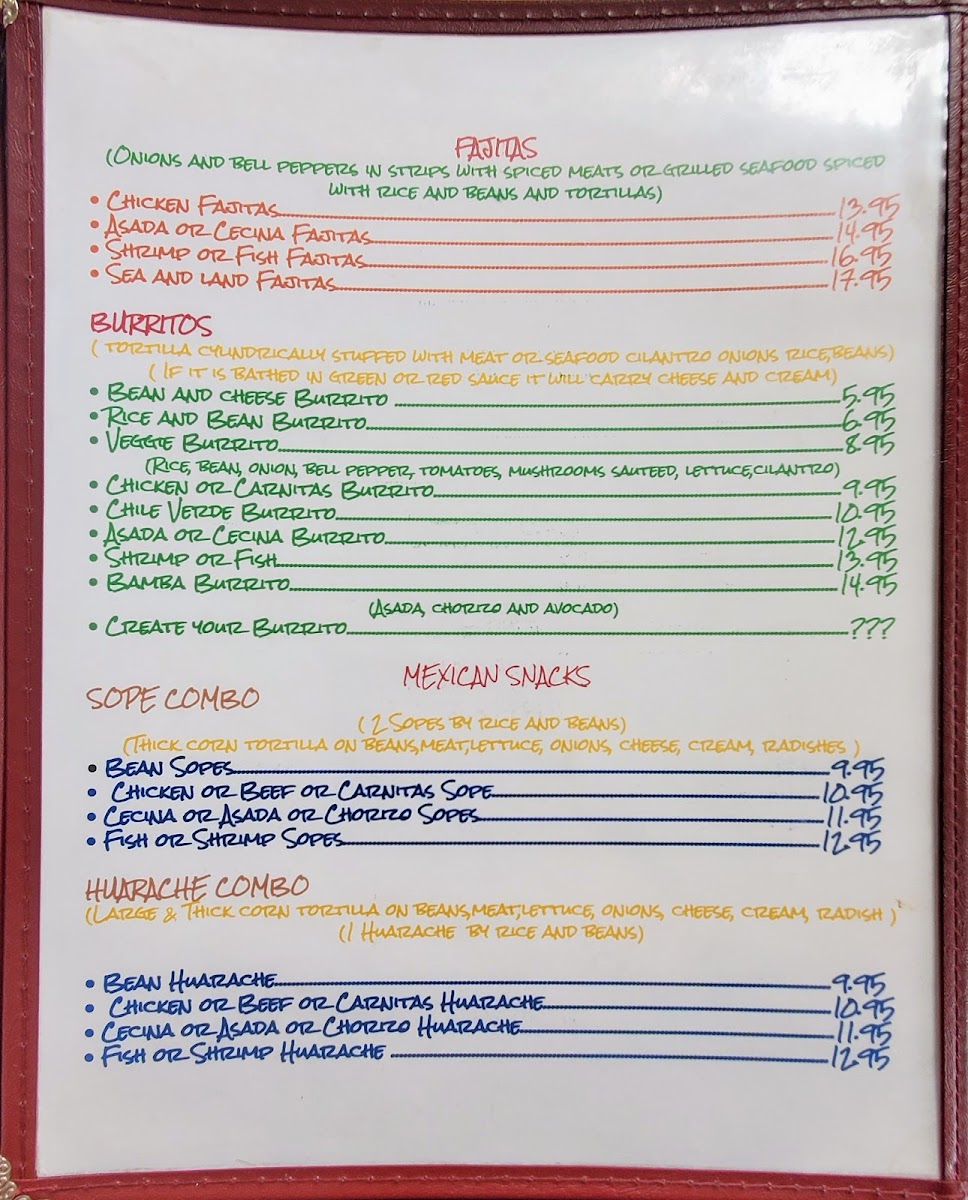 FAJITAS
(ONIONS AND BELL PEPPERS IN STRIPS WITH SPICED MEATS OR GRILLED SEAFOOD SPICED
WITH RICE AND BEANS AND TORTILLAS)
• CHICKEN FAJITAS 13.95
• ASADA OR CECINA FAJITAS 14.95
• SHRIMP OR FISH FAJITAS 16.95
• SEA AND LAND FAJITAS 17.95
BURRITOS
( TORTILLA CYLINDRICALLY STUFFED WITH MEAT OR SEAFOOD CILANTRO ONIONS RICE,BEANS)
( IF IT IS BATHED IN GREEN OR RED SAUCE IT WILL CARRY CHEESE AND CREAM)
• BEAN AND CHEESE BURRITO 5.95
• RICE AND BEAN BURRITO 6.95
• VEGGIE BURRITO 8.95
(RICE, BEAN, ONION, BELL PEPPER, TOMATOES, MUSHROOMS SAUTEED, LETTUCE,CILANTRO)
• CHICKEN OR CARNITAS BURRITO 9.95
• CHILE VERDE BURRITO 10.95
• ASADA OR CECINA BURRITO 12.95
• SHRIMP OR FISH 13.95
• BAMBA BURRITO 14.95
(ASADA, CHORIZO AND AVOCADO)
• CREATE YOUR BURRITO ???
MEXICAN SNACKS
SOPE COMBO
( 2 SOPES BY RICE AND BEANS)
(THICK CORN TORTILLA ON BEANS,MEAT,LETTUCE, ONIONS, CHEESE, CREAM, RADISHES )
• BEAN SOPES 9.95
• CHICKEN OR BEEF OR CARNITAS SOPE 10.95
• CECINA OR ASADA OR CHORIZO SOPES 11.95
• FISH OR SHRIMP SOPES 12.95
HUARACHE COMBO
(LARGE & THICK CORN TORTILLA ON BEANS,MEAT,LETTUCE, ONIONS, CHEESE, CREAM, RADISH )
(1 HUARACHE BY RICE AND BEANS)
• BEAN HUARACHE 9.95
• CHICKEN OR BEEF OR CARNITAS HUARACHE 10.95
• CECINA OR ASADA OR CHORIZO HUARACHE 11.95
• FISH OR SHRIMP HUARACHE 12.95